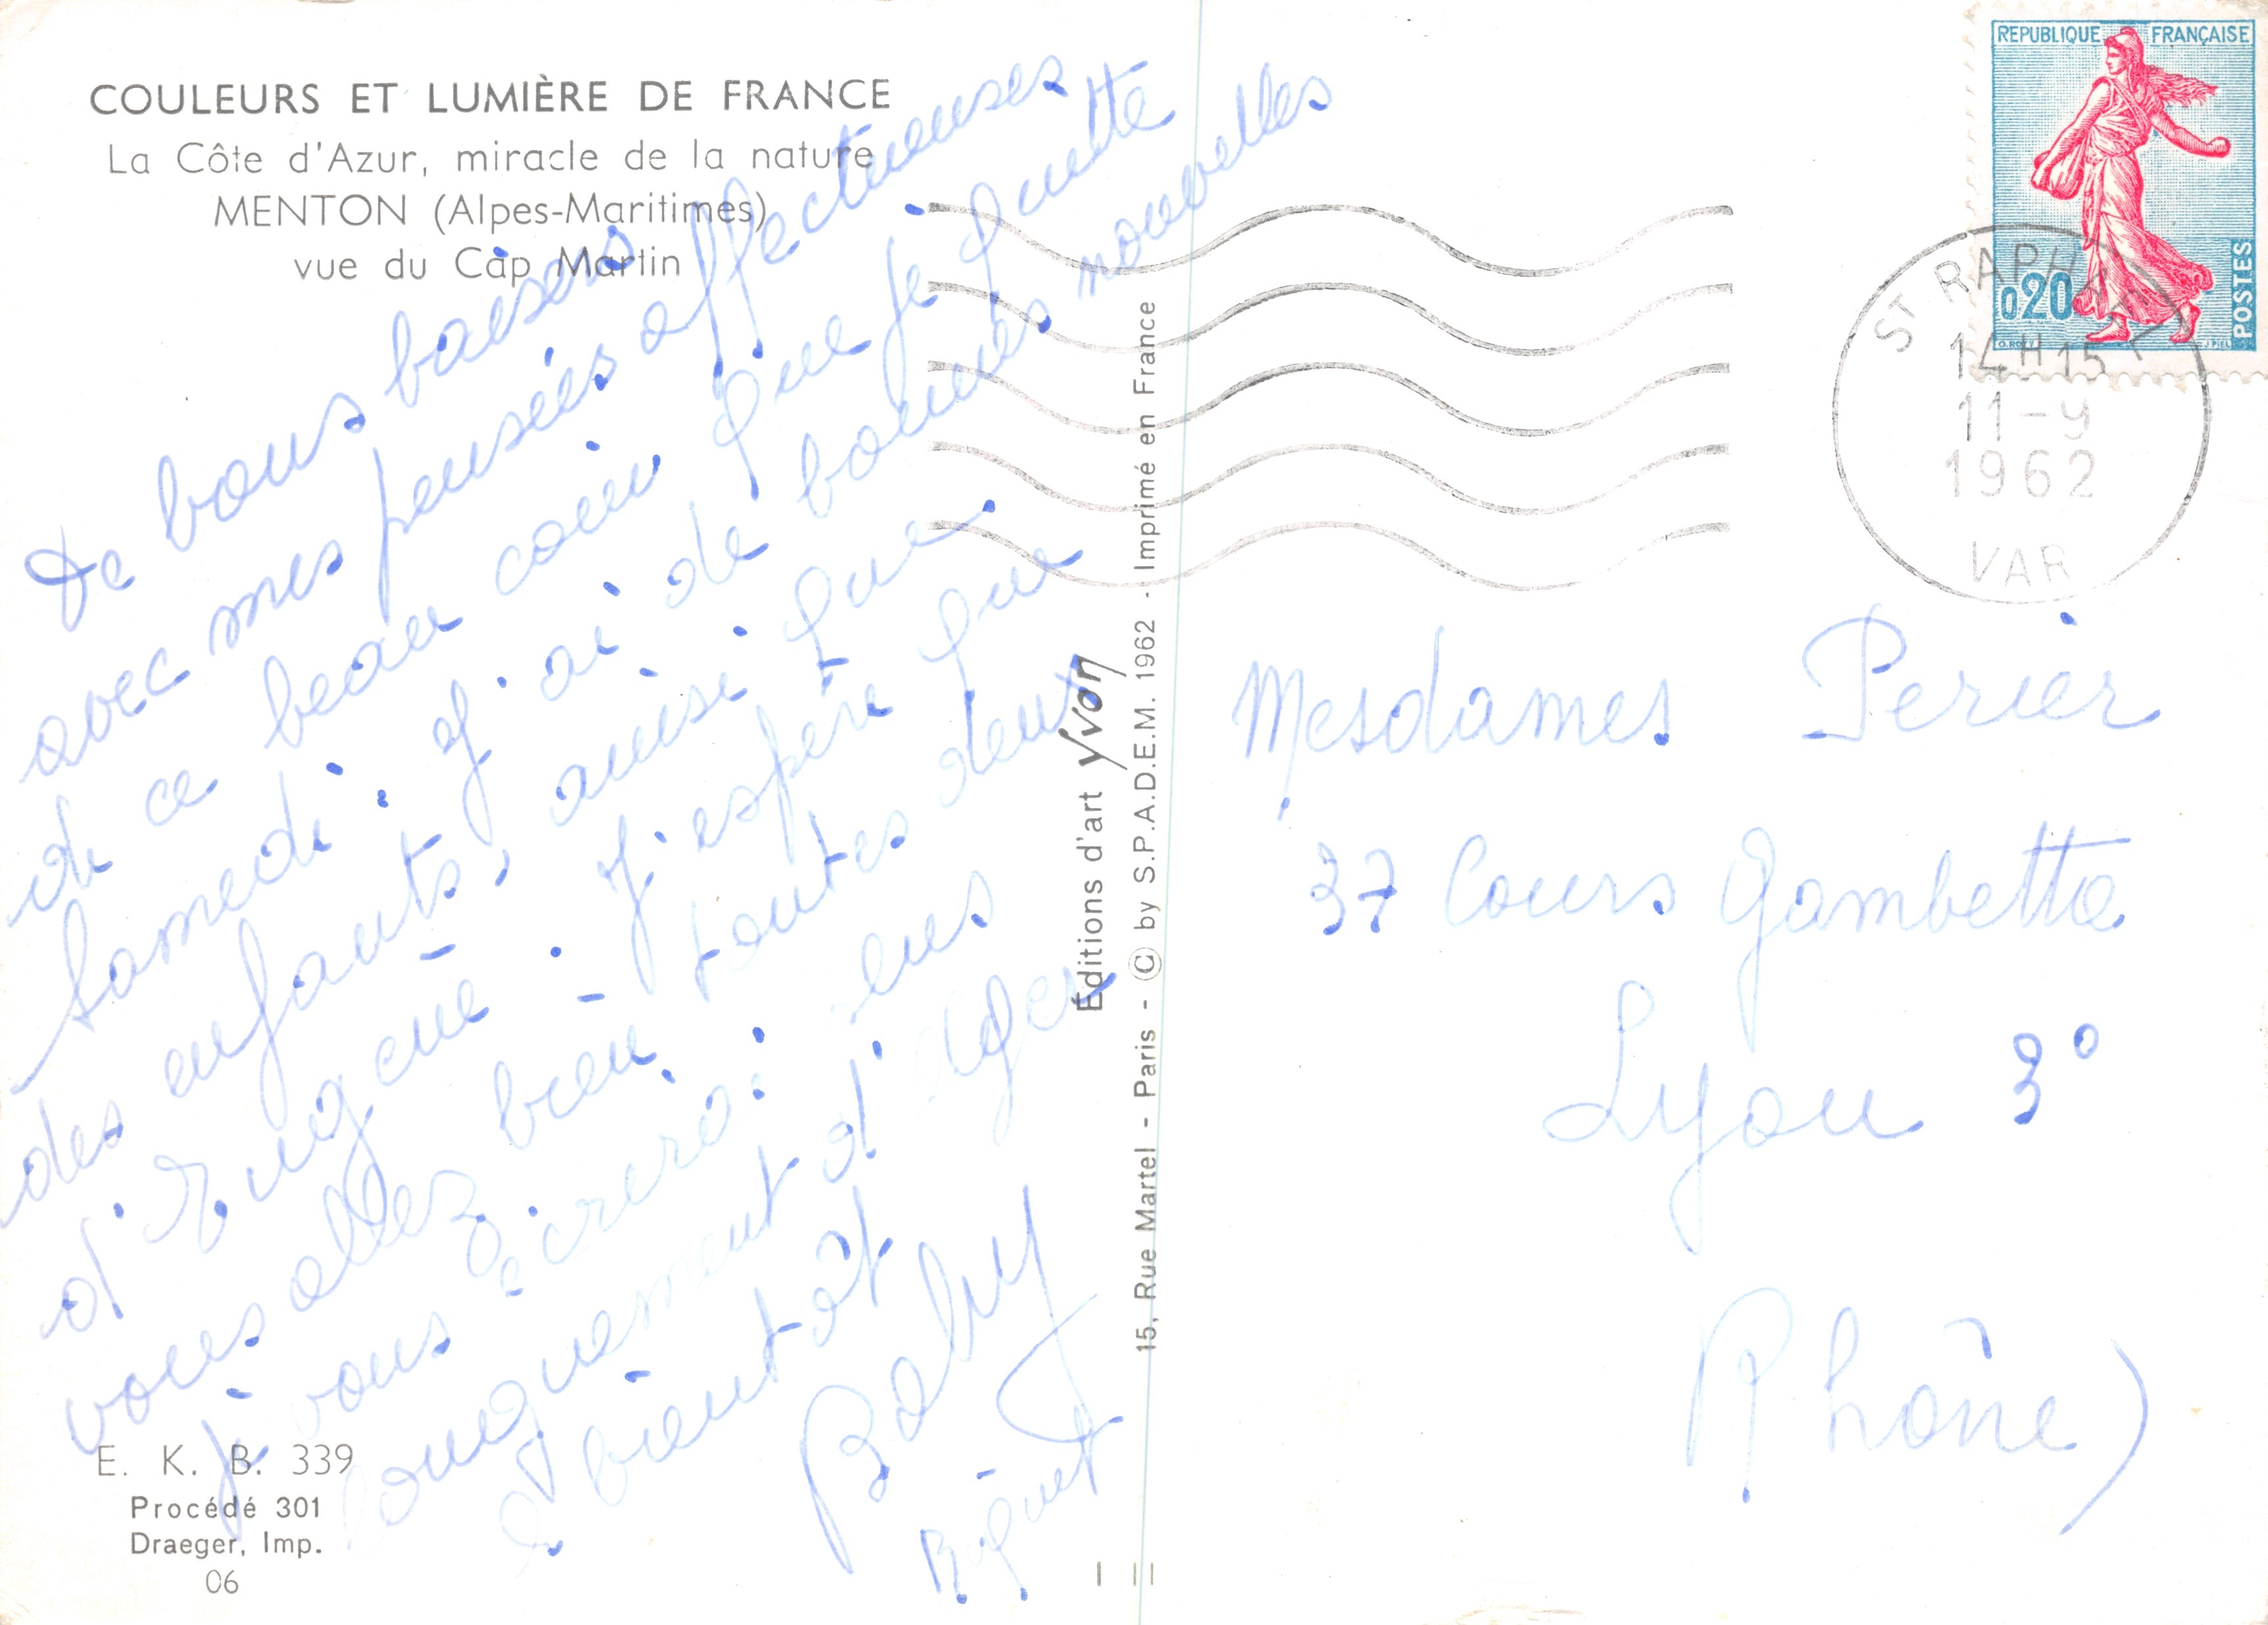 COULEURS ET LUMIÈRE DE FRANCE
La Côte d'Azur, miracle de la nature
MENTON (Alpes-Maritimes)
vue du Cap Martin
De bons baisers affectueuses
avec mes pensées
de ce beau coin que je quitte
Samedi. J'ai de bonnes nouvelles
des enfants, ainsi que
d'Eugénie. J'espère que
vous allez bien toutes deux
je vous écrirai
longuement d'Agen
à bientôt
Baby
Riquet
E. K. B. 339
Procédé 301
Draeger, Imp.
06
Éditions d'art Yvon
15, Rue Martel - Paris - © by S.P.A.D.E.M. 1962 - Imprimé en France
REPUBLIQUE FRANÇAISE
0,20
POSTES
O. ROTY
J. PIEL
ST RAPHAEL
14H15
11-9
1962
VAR
Mesdames Perier
37 Cours Gambetta
Lyon 3°
Rhône)